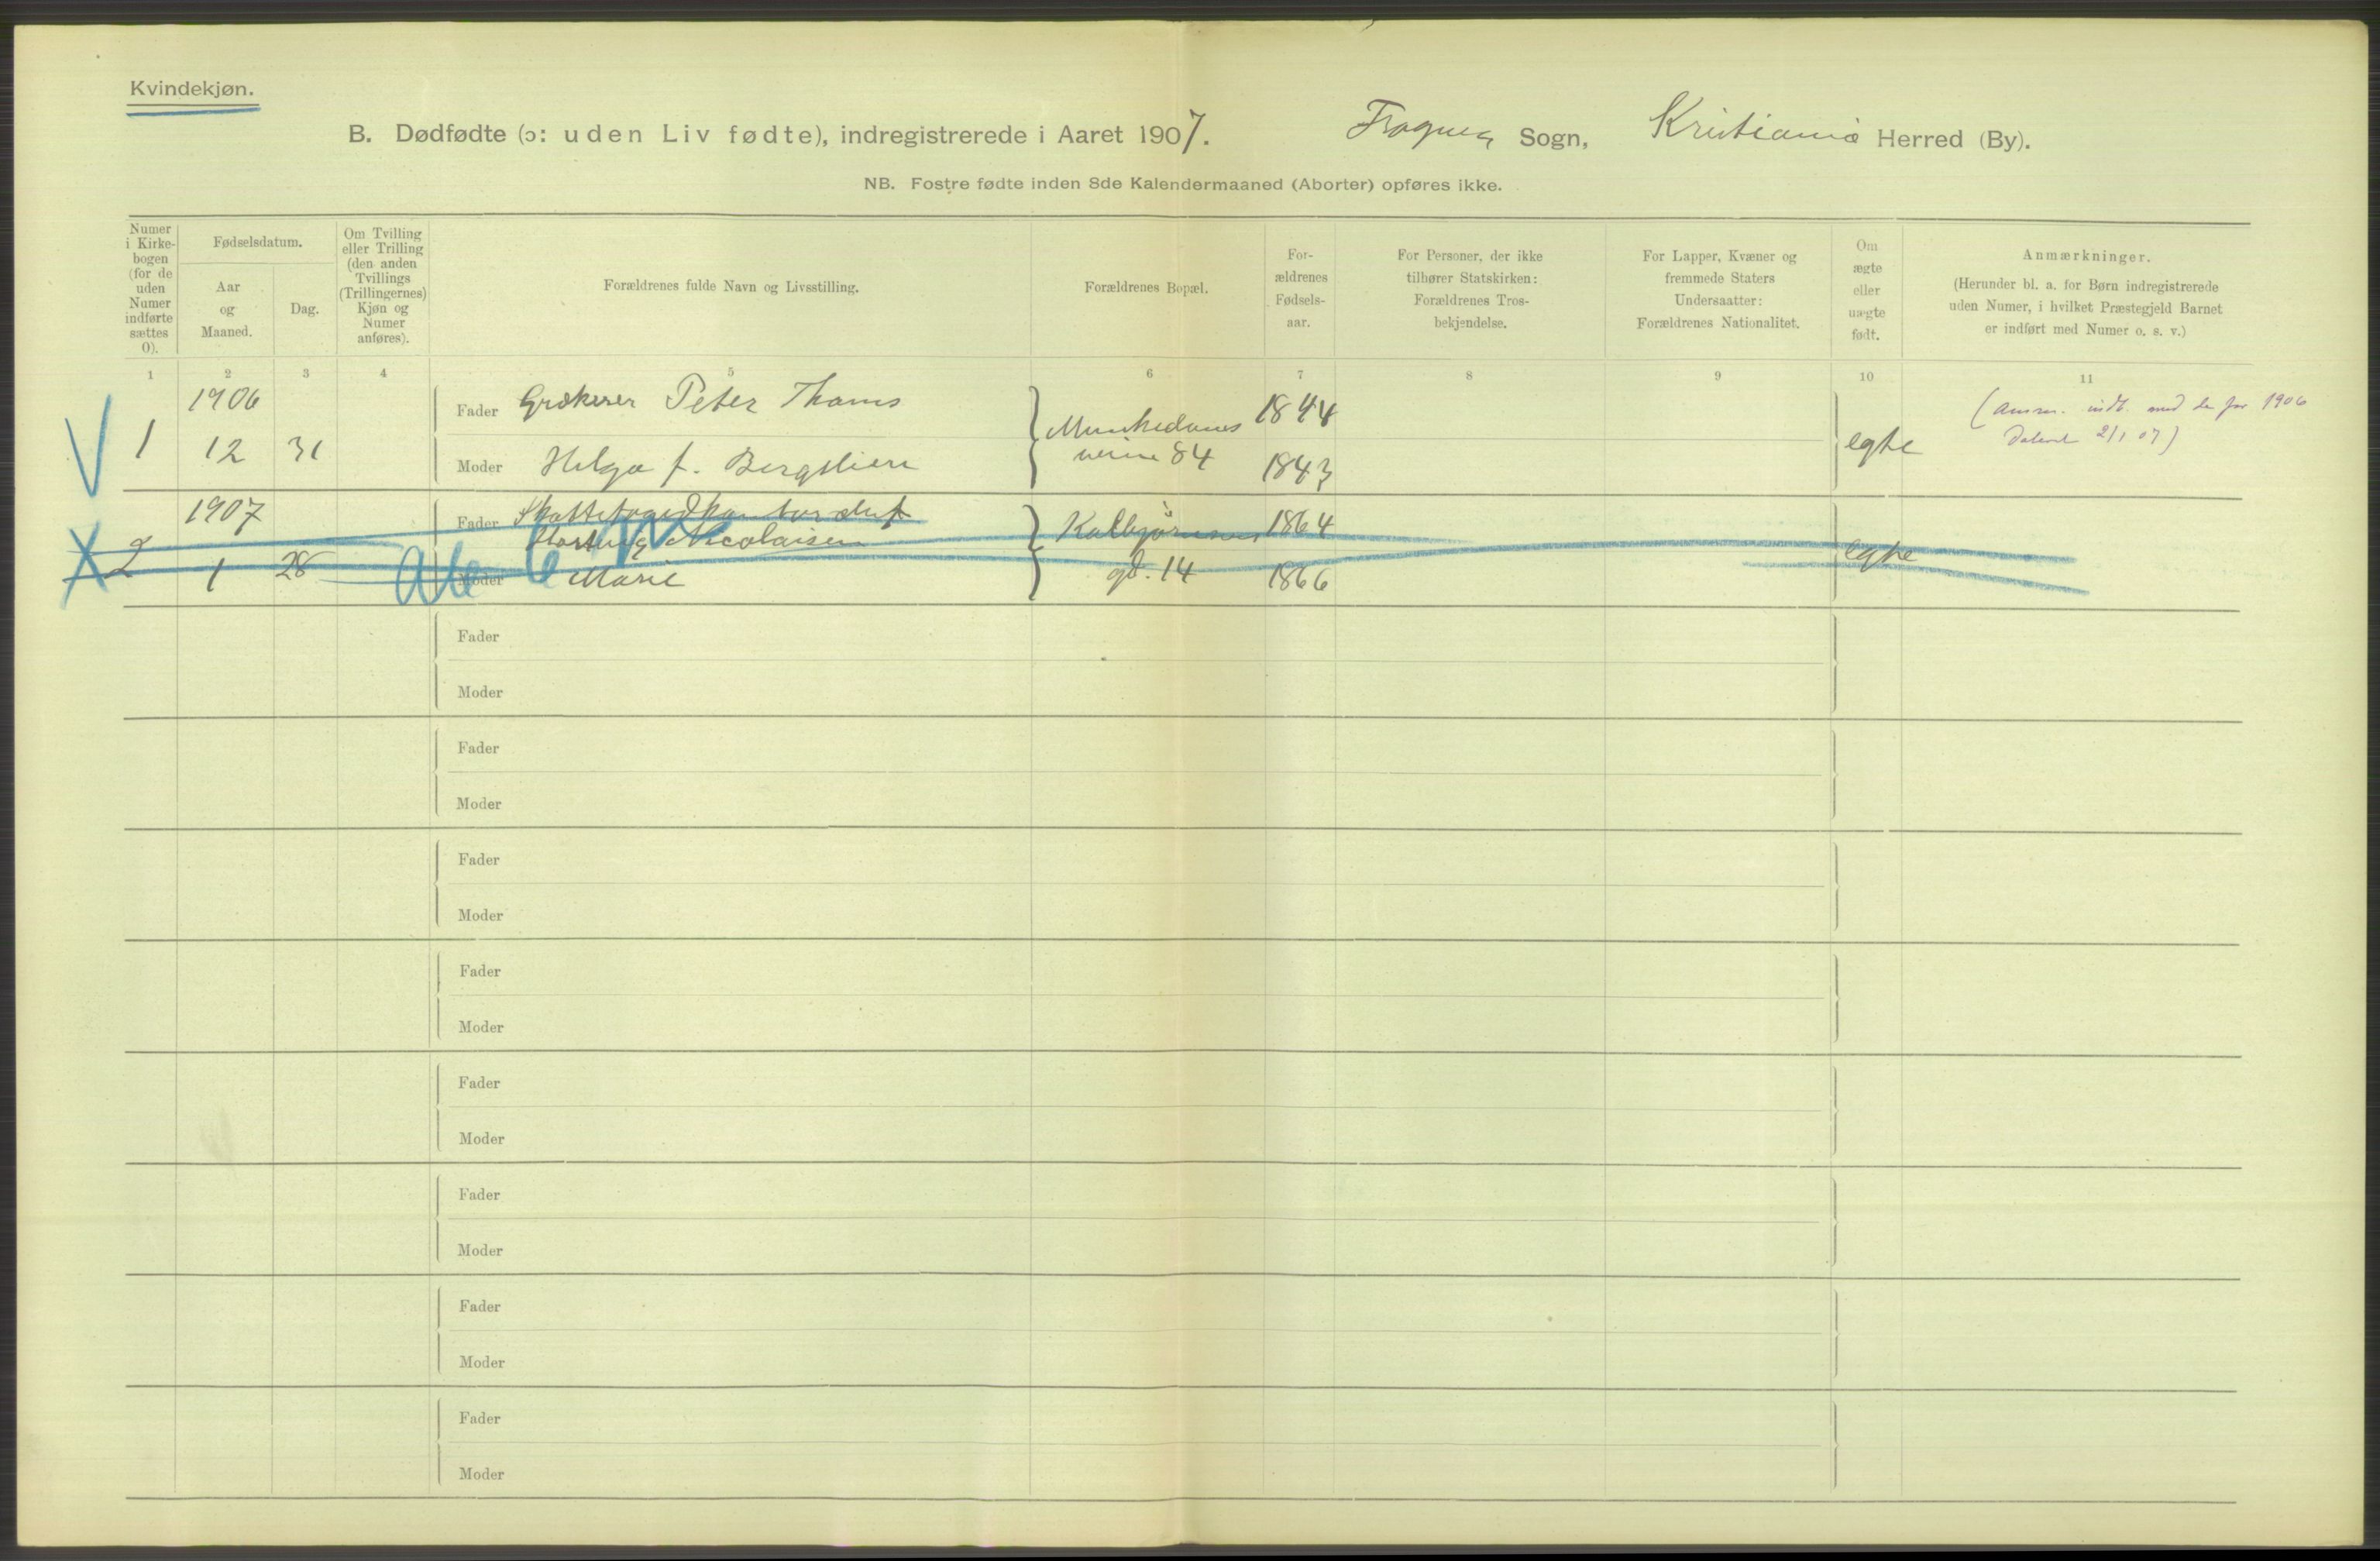 Kvindekjøn.
B. Dødfødte (ɔ: uden Liv fødte), indregistrerede i Aaret 1907. Sogn, Kristiania Herred (By).
NB. Fostre fødte inden 8de Kalendermaaned (Aborter) opføres ikke.
Numer i Kirke-bogen (for de uden Numer indførte sættes 0).
Fødselsdatum.
Aar og Maaned.
Dag.
Om Tvilling eller Trilling (den anden Tvillings (Trillingernes) Kjøn og Numer anføres).
Forældrenes fulde Navn og Livsstilling.
Forældrenes Bopæl.
For-ældrenes Fødsels-aar.
For Personer, der ikke tilhører Statskirken: Forældrenes Tros-bekjendelse.
For Lapper, Kvæner og fremmede Staters Undersaatter: Forældrenes Nationalitet.
Om ægte eller uægte født.
Anmærkninger.
(Herunder bl. a. for Børn indregistrerede uden Numer, i hvilket Præstegjeld Barnet er indført med Numer o. s. v.)
1 2 3 4 5 6 7 8 9 10 11
1906
Fader Peter Thams 1844
1 12 31
Moder Helga f. Bergslien 84 1843 egte
for 1906
2/1 07)
1907
Fader
Nicolaisen 1864
2 1 28
Moder Marie gd. 14 1866 egte
Fader
Moder
Fader
Moder
Fader
Moder
Fader
Moder
Fader
Moder
Fader
Moder
Fader
Moder
Fader
Moder